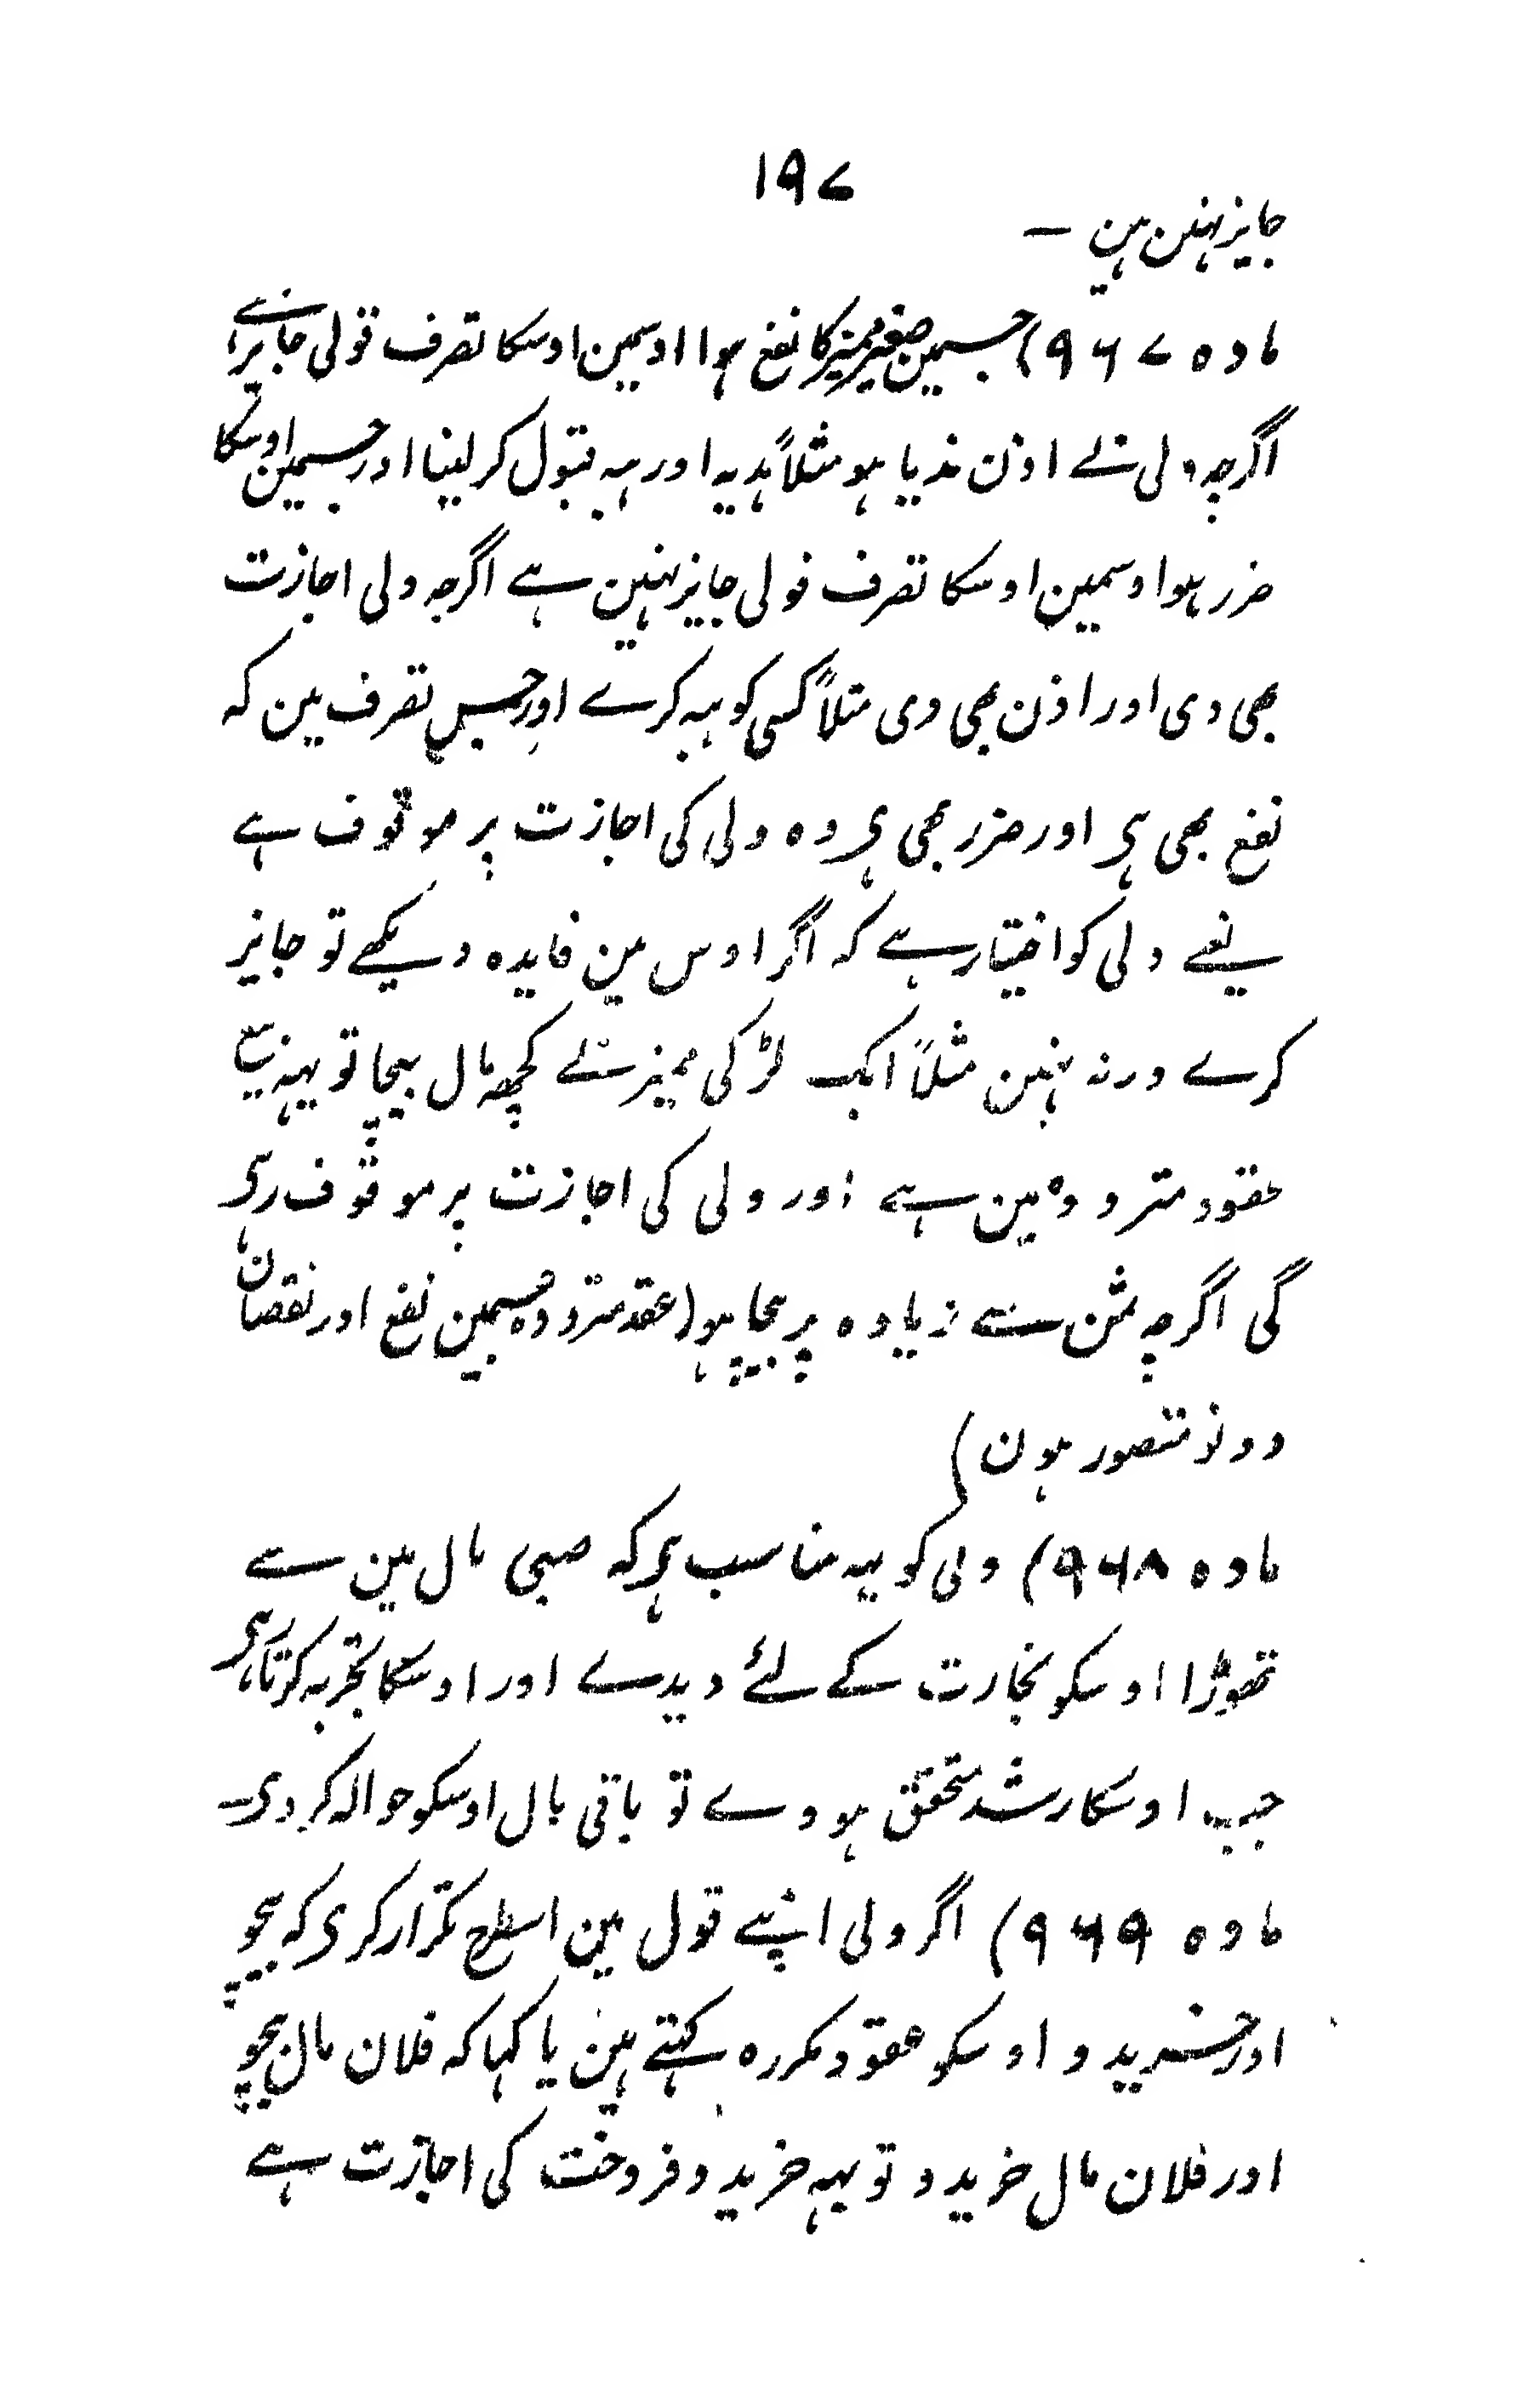 ۱۹۷
جایز نہین ہین ۔
مادہ ۹۶۷) جسمین صغیر ممیز کا نفع ہوا اوسمین اوسکا تصرف قولی جایز ہے
اگرچہ ولی نے اذن ندیا ہو مثلاً ہدیہ اور ہبہ قبول کر لینا اور جسمین اوسکا
ضرر ہوا وسمین اوسکا تصرف قولی جایز نہین ہے اگرچہ ولی اجازت
بھی دی اور اذن بھی دی مثلاً کسی کو ہبہ کرے اور جس تصرف مین کہ
نفع بھی ہی اور ضرر بھی ہی وہ ولی کی اجازت پر موقوف ہے
یعنے ولی کو اختیار ہے کہ اگر اوس مین فایدہ دیکھے تو جایز
کرے ورنہ نہین مثلاً ایک لڑکی ممیز نے کچھ مال بیچا تو یہہ بیع
عقود مترددہ مین ہے اور ولی کی اجازت پر موقوف رہی
گی اگرچہ ثمن سے زیادہ پر بیچا ہو (عقد مترددہ جسمین نفع اور نقصان
دونو متصور ہون)
مادہ ۹۶۸) ولی کو یہہ مناسب ہی کہ صبی مال مین سے
تھوڑا اوسکو تجارت کے لئے دیدے اور اوسکا تجربہ کرتا رہی
جب اوسکا رشد متحقق ہووے تو باقی مال اوسکو حوالہ کر دی۔
مادہ ۹۶۹) اگر ولی اپنے قول مین اسطرح تکرار کری کہ بیچو
اور خریدو اوسکو عقود مکررہ کہتے ہین یا کہا کہ فلان مال بیچو
اور فلان مال خریدو تو یہہ خرید و فروخت کی اجازت ہے